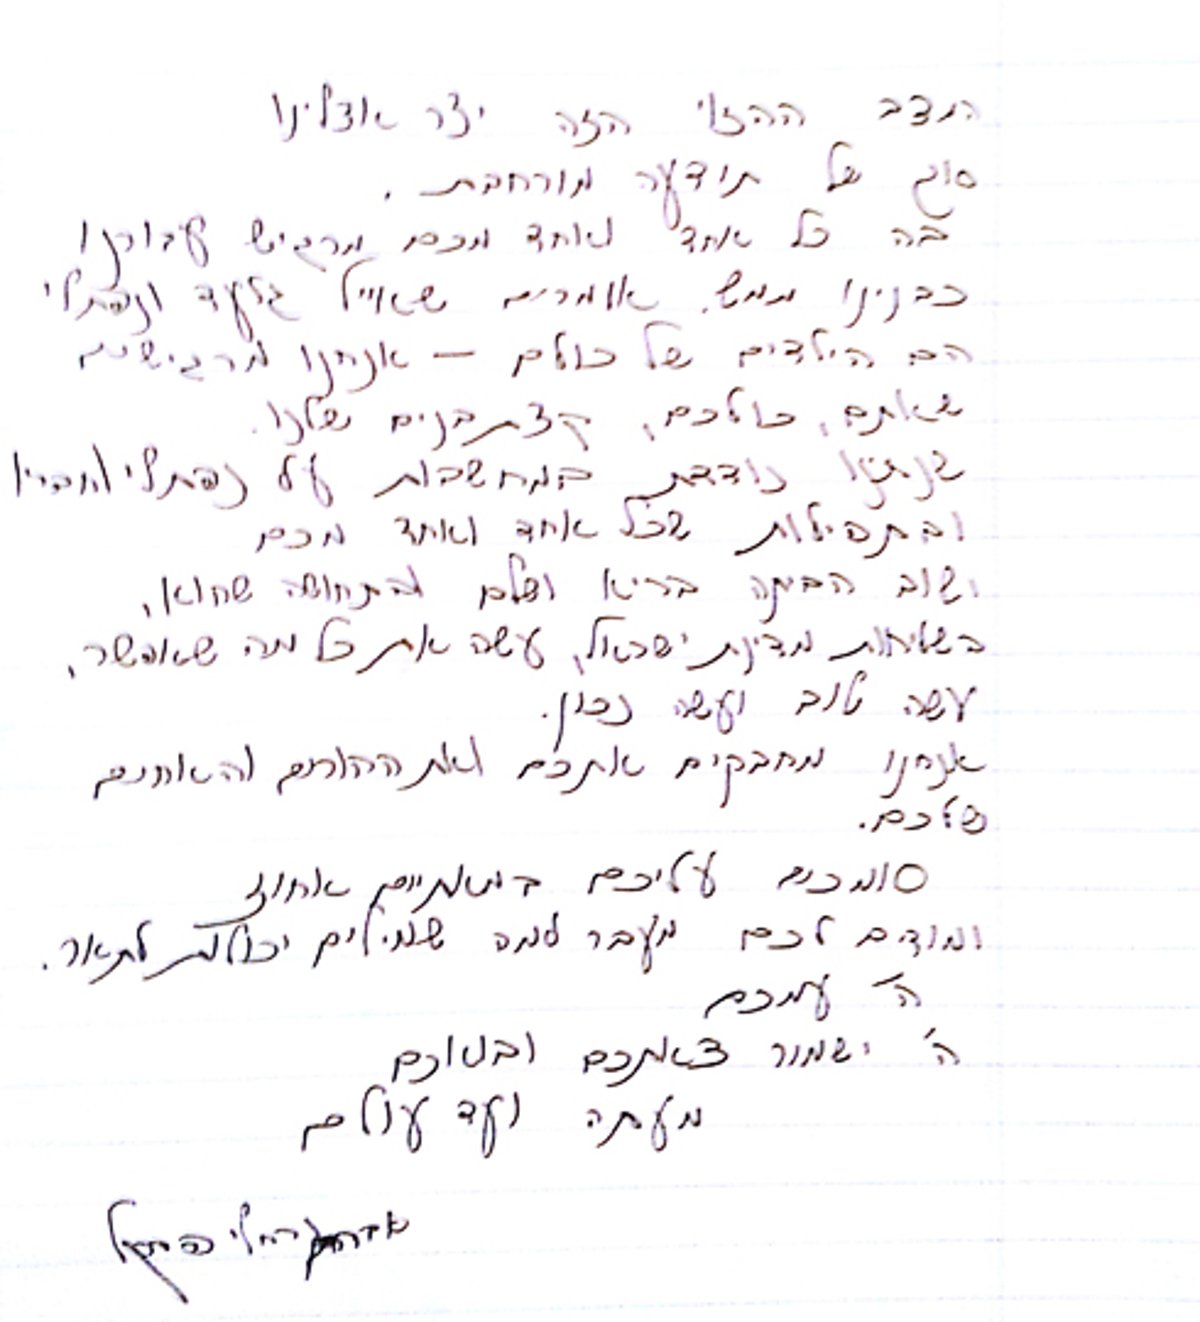 המצב ההזוי הזה יצר אצלינו
סוג של תודעה מורחבת,
בה כל אחד ואחד מכם מרגיש עבורנו
כבנינו ממש. אומרים שאייל גלעד ונפתלי
הם הילדים של כולם – אנחנו מרגישים
שאתם, כולכם, קצת בנים שלנו.
שנתנו נודדת במחשבות על נפתלי וחבריו
ובתפילות שכל אחד ואחד מכם
ישוב הביתה בריא ושלם ובתחושה שהוא,
בשליחות מדינת ישראל, עשה את כל מה שאפשר,
עשה טוב ועשה נכון.
אנחנו מחבקים אתכם ואת ההורים והאחים
שלכם.
סומכים עליכם במאתיים אחוז
ומודים לכם מעבר למה שמילים יכולות לתאר.
ה' עמכם
ה' ישמור צאתכם ובואכם
מעתה ועד עולם
רחלי פרנקל